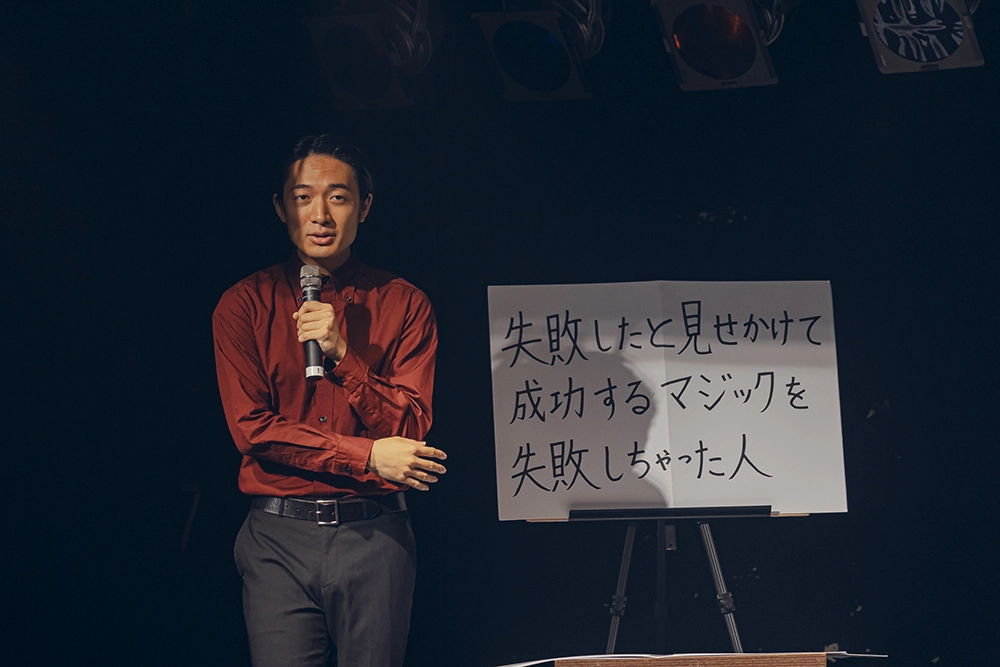 失敗したと見せかけて
成功するマジックを
失敗しちゃった人